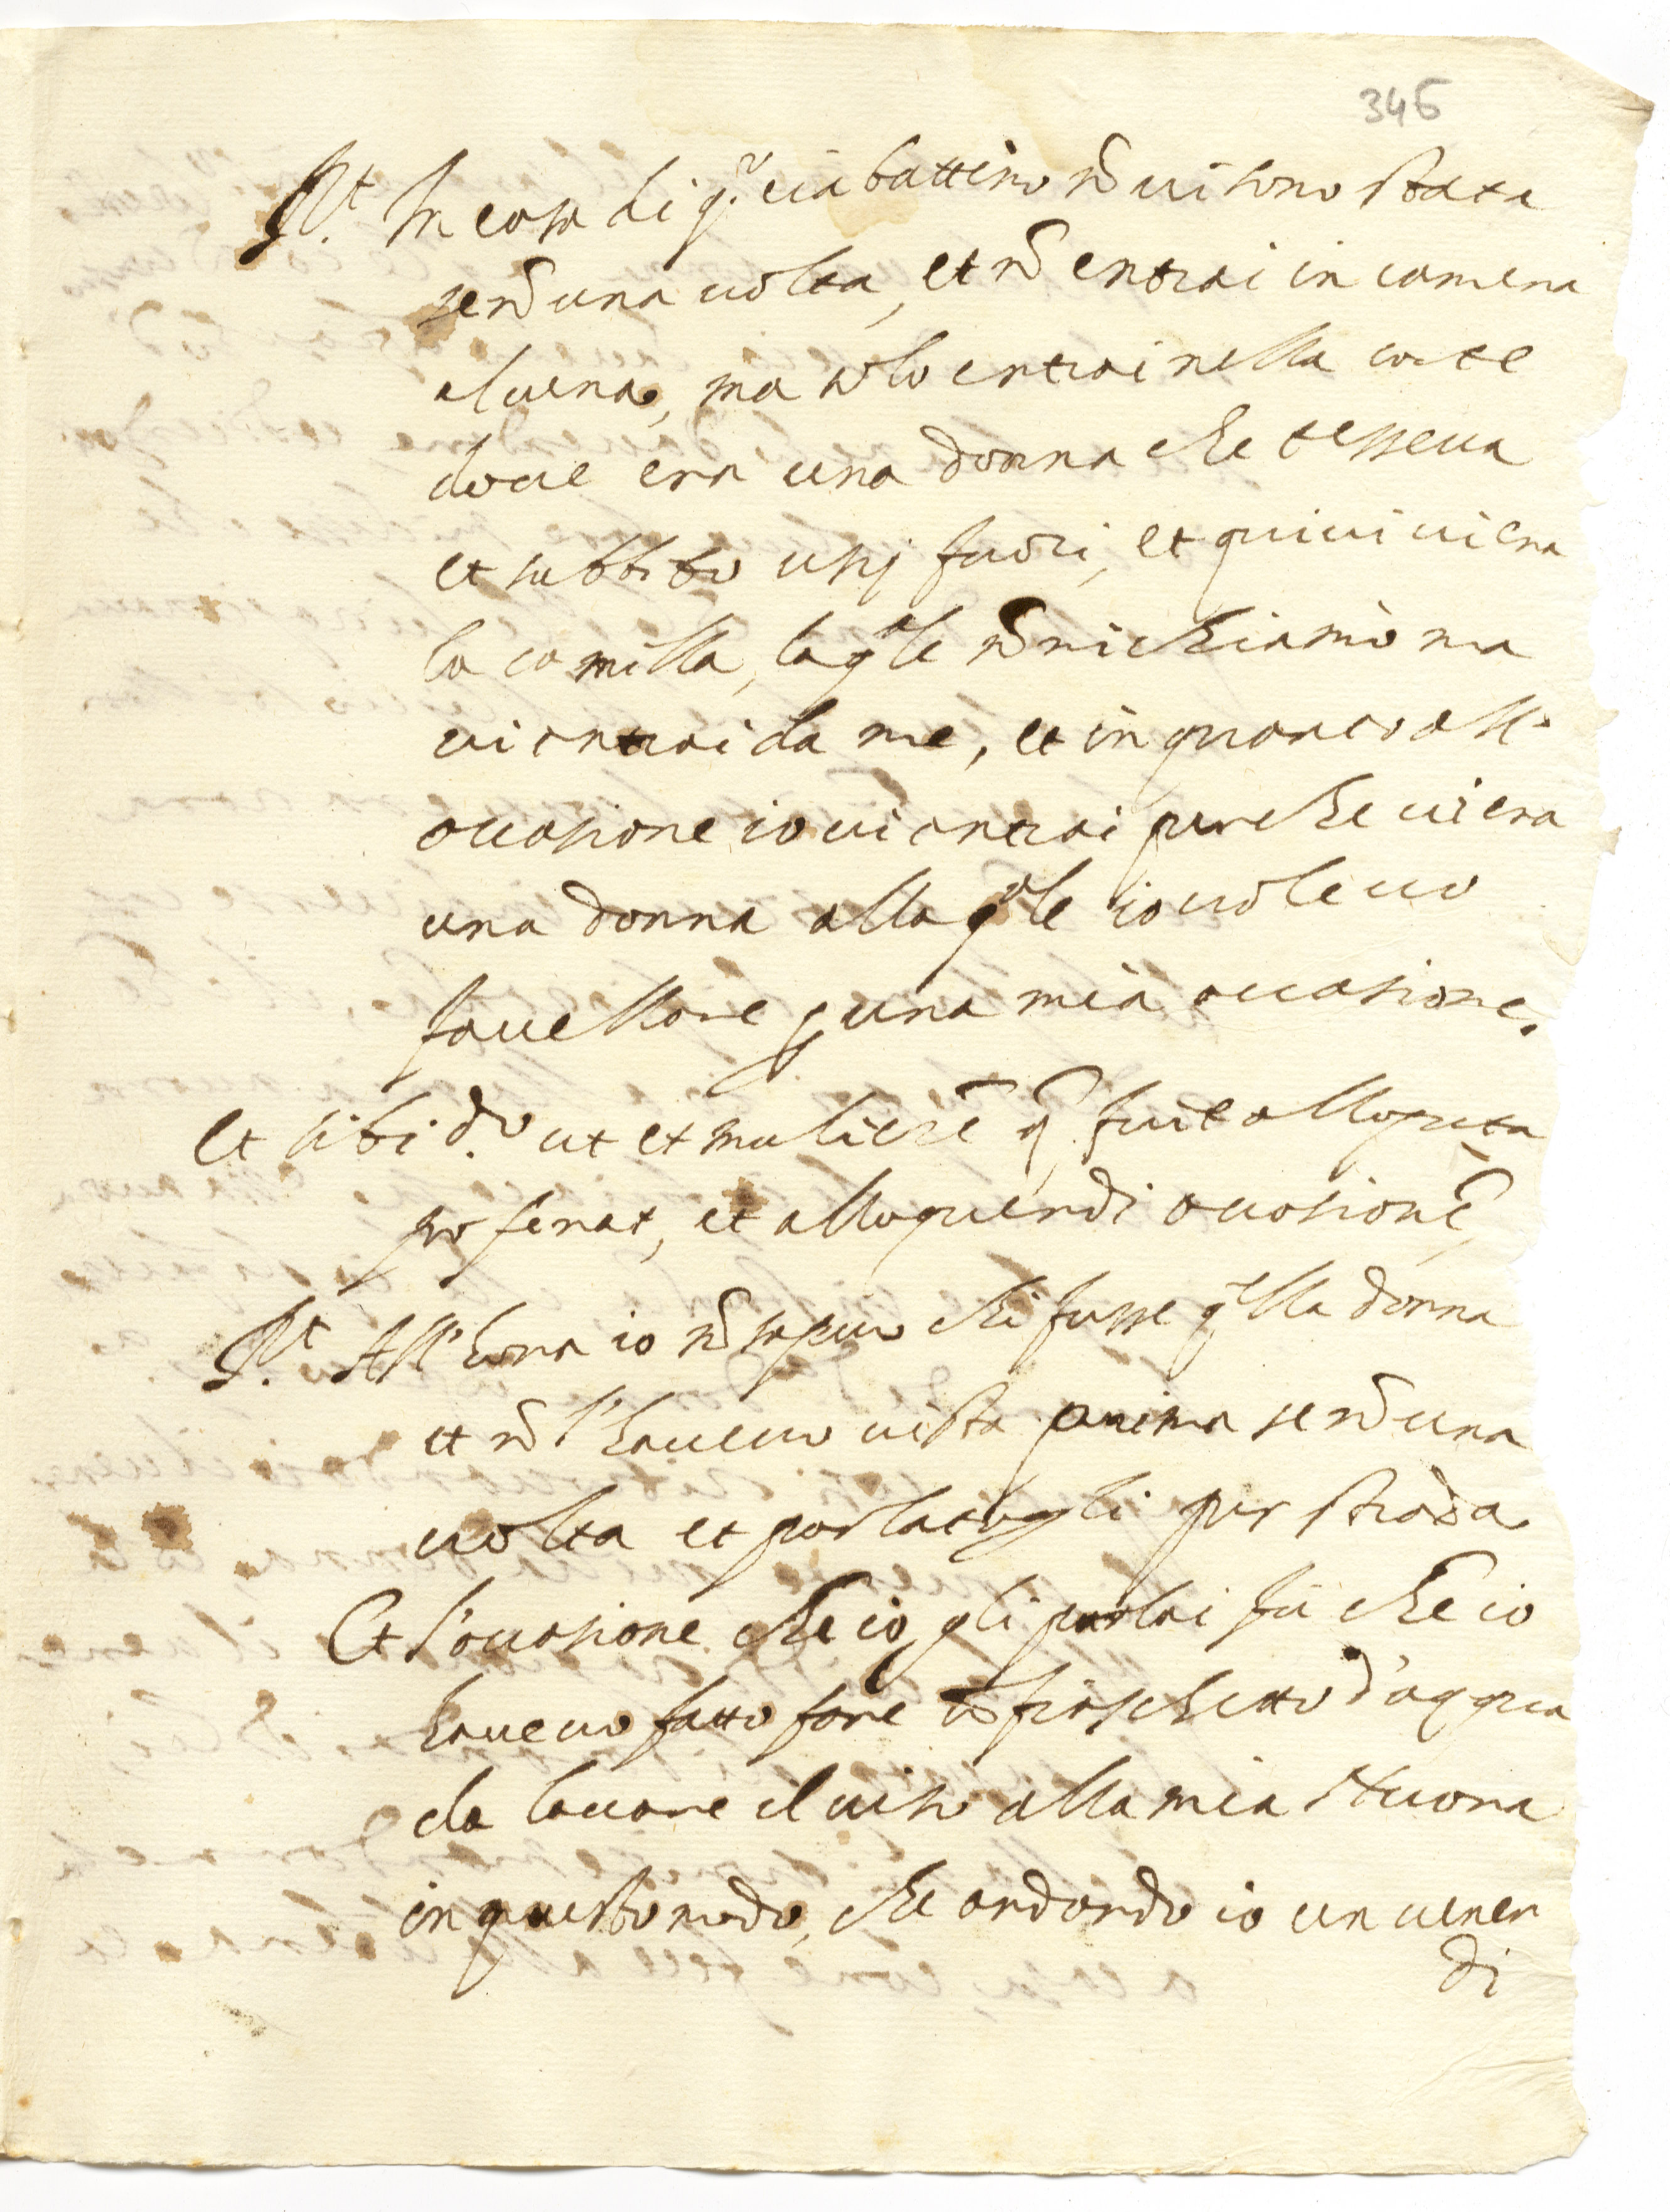 346
R.t In casa di q.o ciabattino nõ vi sono stata
se nõ una volta, et nõ entrai in camera
alcuna, ma solo entrai nella corte
dove era una donna che tesseva
et subbito usij fuori, et quivi vi era
la Camilla, la qle nõ mi chiamò ma
vi entrai da me, et in quanto all'
occasione io vi entrai perche vi era
una donna alla qle io volevo
favellare p una mia occasione.
Et sibi d.o ut et mulierẽ q. fuit alloquuta
proferat, et alloquendi occasionẽ
R.t All'hora io nõ sapevo chi fusse qlla donna
et nõ l'havevo vista prima se nõ una
volta et parlatogli per strada
Et l'occasione che io gli parlai fù che io
havevo fatto fare un fiaschetto d'acqua
da lavare il viso alla mia Suora
in questo modo, che andando io un vener
di